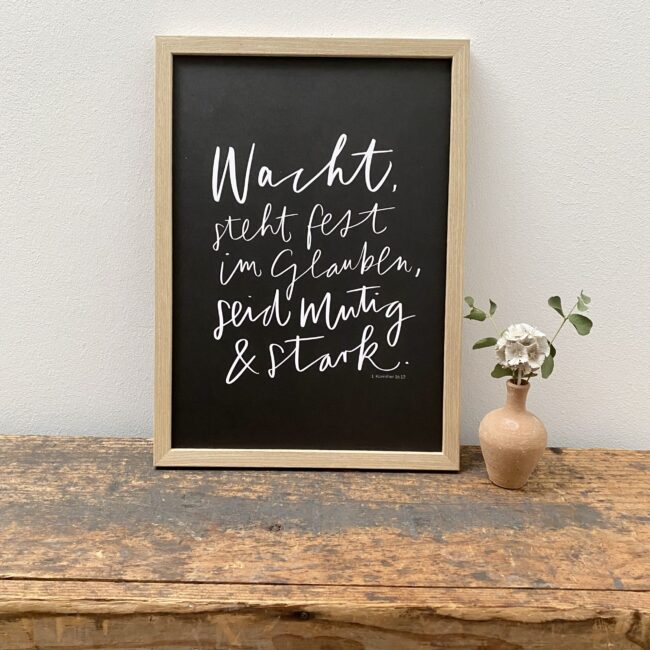 Wacht,
steht fest
im Glauben,
seid mutig
& stark.
1. Korinther 16:13